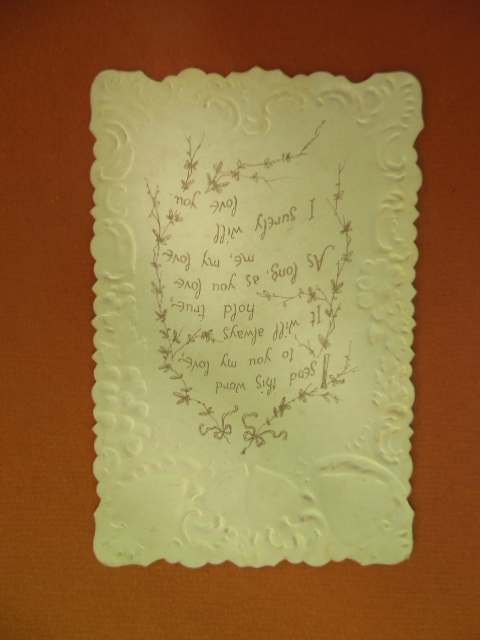 I send this word
to you my love;
It will always
hold true;
As long, as you love
me, my love
I surely will
love you.